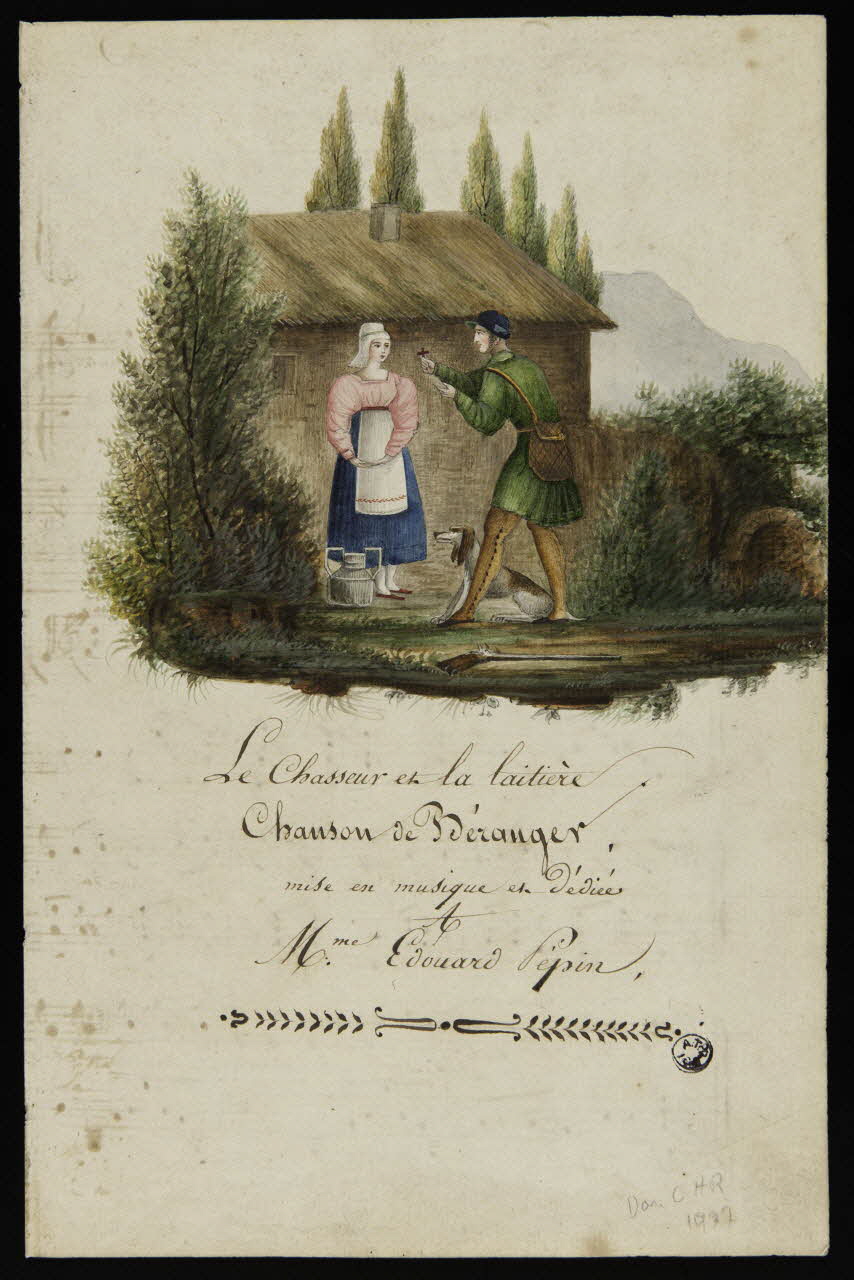 Le Chasseur et la laitière
Chanson de Béranger,
mise en musique et Dédiée
A
M.me Edouard Pépin,
Don C H R